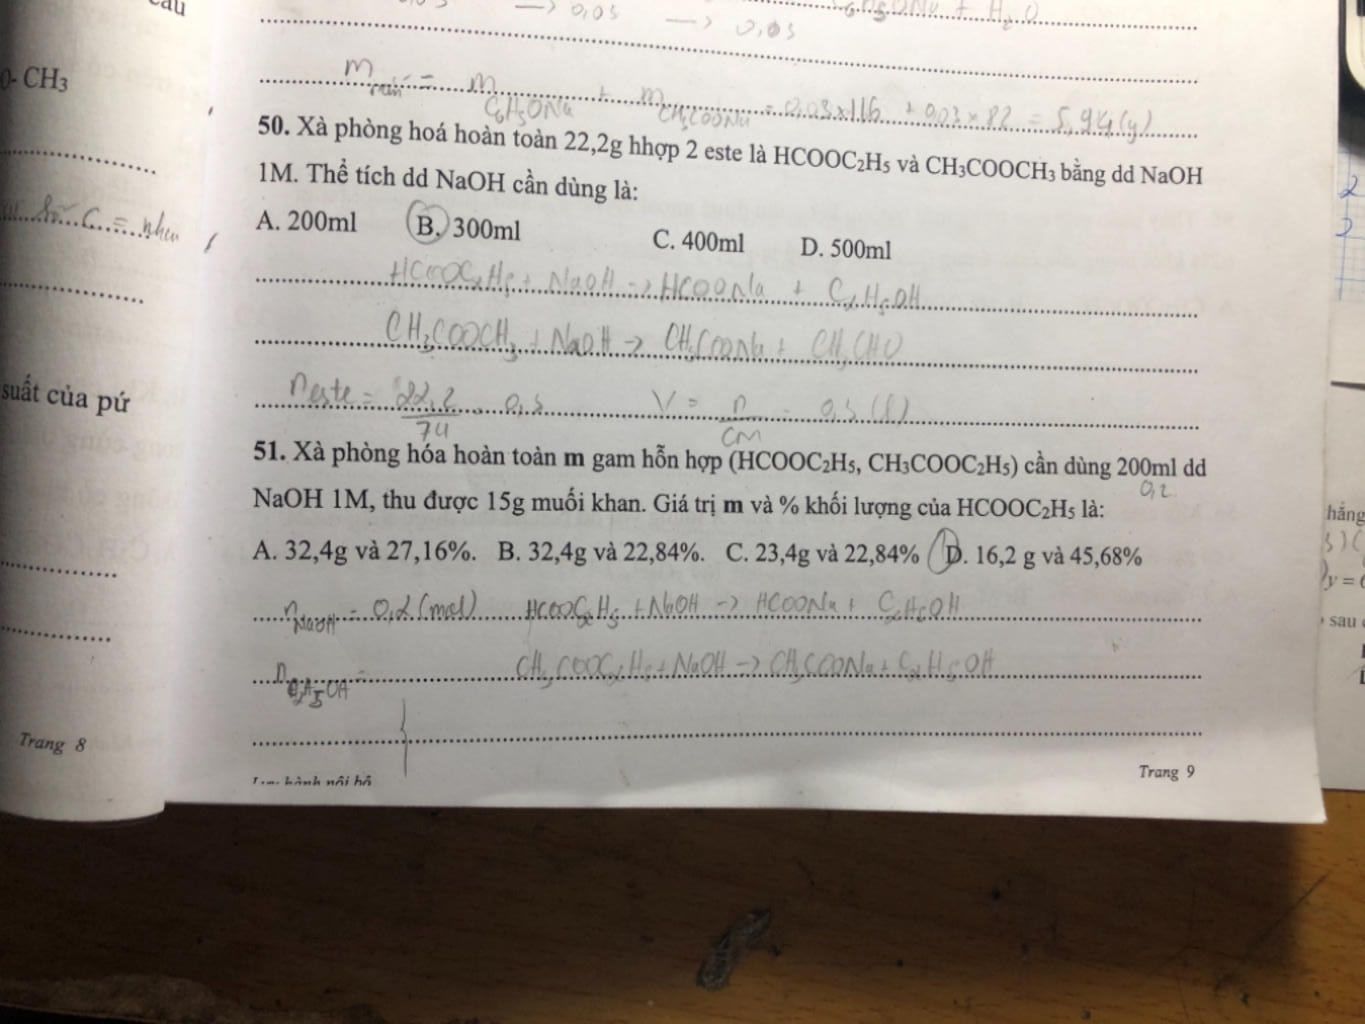 m rắn = m C6H5ONa + m CH3COONa = 0,03x116 + 0,03x82 = 5,94(g)
50. Xà phòng hoá hoàn toàn 22,2g hhợp 2 este là HCOOC2H5 và CH3COOCH3 bằng dd NaOH
1M. Thể tích dd NaOH cần dùng là:
A. 200ml B. 300ml C. 400ml D. 500ml
HCOOC2H5 + NaOH → HCOONa + C2H5OH
CH3COOCH3 + NaOH → CH3COONa + CH3CHO
neste = 22,2/74 = 0,3 V = n/CM = 0,3 (l)
51. Xà phòng hóa hoàn toàn m gam hỗn hợp (HCOOC2H5, CH3COOC2H5) cần dùng 200ml dd
0,2
NaOH 1M, thu được 15g muối khan. Giá trị m và % khối lượng của HCOOC2H5 là:
A. 32,4g và 27,16%. B. 32,4g và 22,84%. C. 23,4g và 22,84% D. 16,2 g và 45,68%
nNaOH = 0,2 (mol) HCOOC2H5 + NaOH → HCOONa + C2H5OH
nC2H5OH = CH3COOC2H5 + NaOH → CH3COONa + C2H5OH
Trang 9
- CH3
C = như
suất của pứ
Trang 8
sau